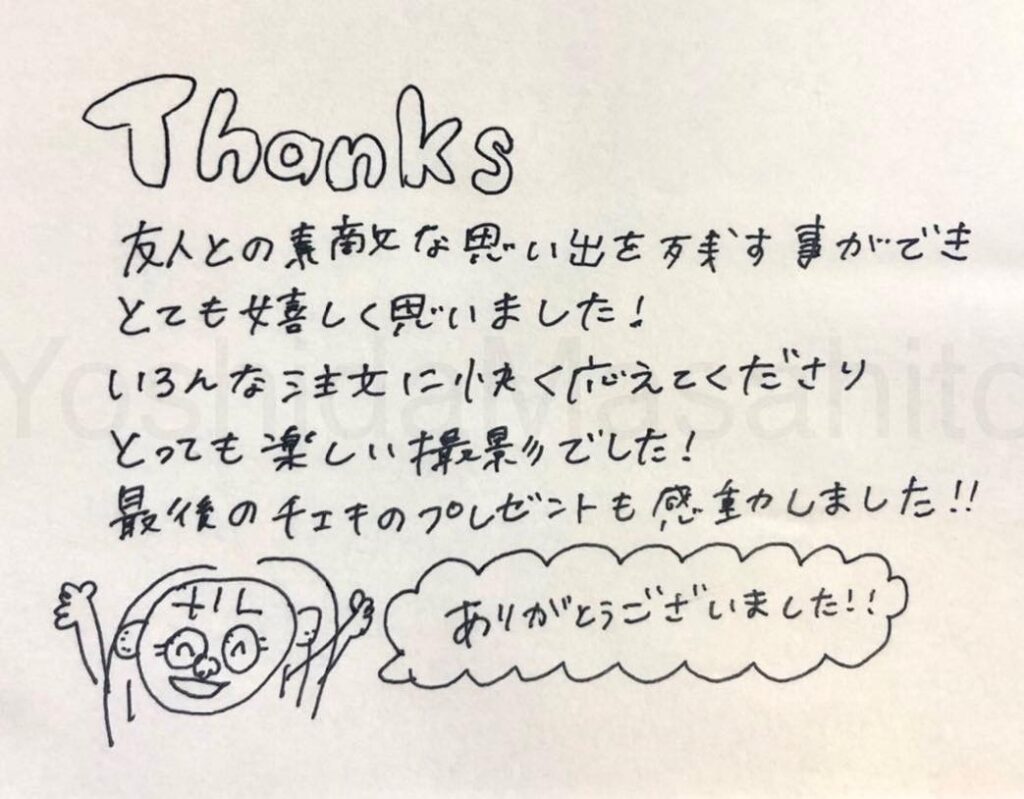 Thanks
友人との素敵な思い出を残す事ができ
とても嬉しく思いました!
いろんな注文に快く応えてくださり
とっても楽しい撮影でした!
最後のチェキのプレゼントも感動しました!!
ありがとうございました!!
YoshidaMasahito